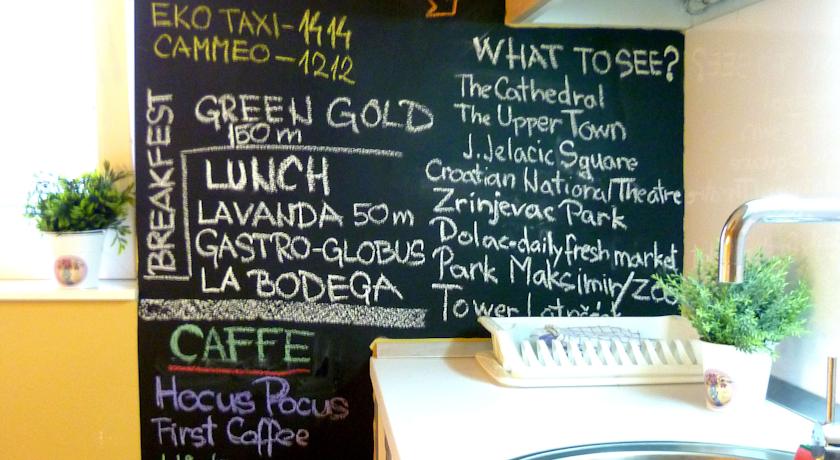 EKO TAXI-1414
CAMMEO-1212
BREAKFEST
GREEN GOLD
150 m
LUNCH
LAVANDA 50m
GASTRO-GLOBUS
LA BODEGA
CAFFE
Hocus Pocus
First Coffee
WHAT TO SEE?
The Cathedral
The Upper Town
J. Jelacic Sguare
Croatian National Theatre
Zrinjevac Park
Dolac-daily fresh market
Park Maksimir/Zoo
Tower